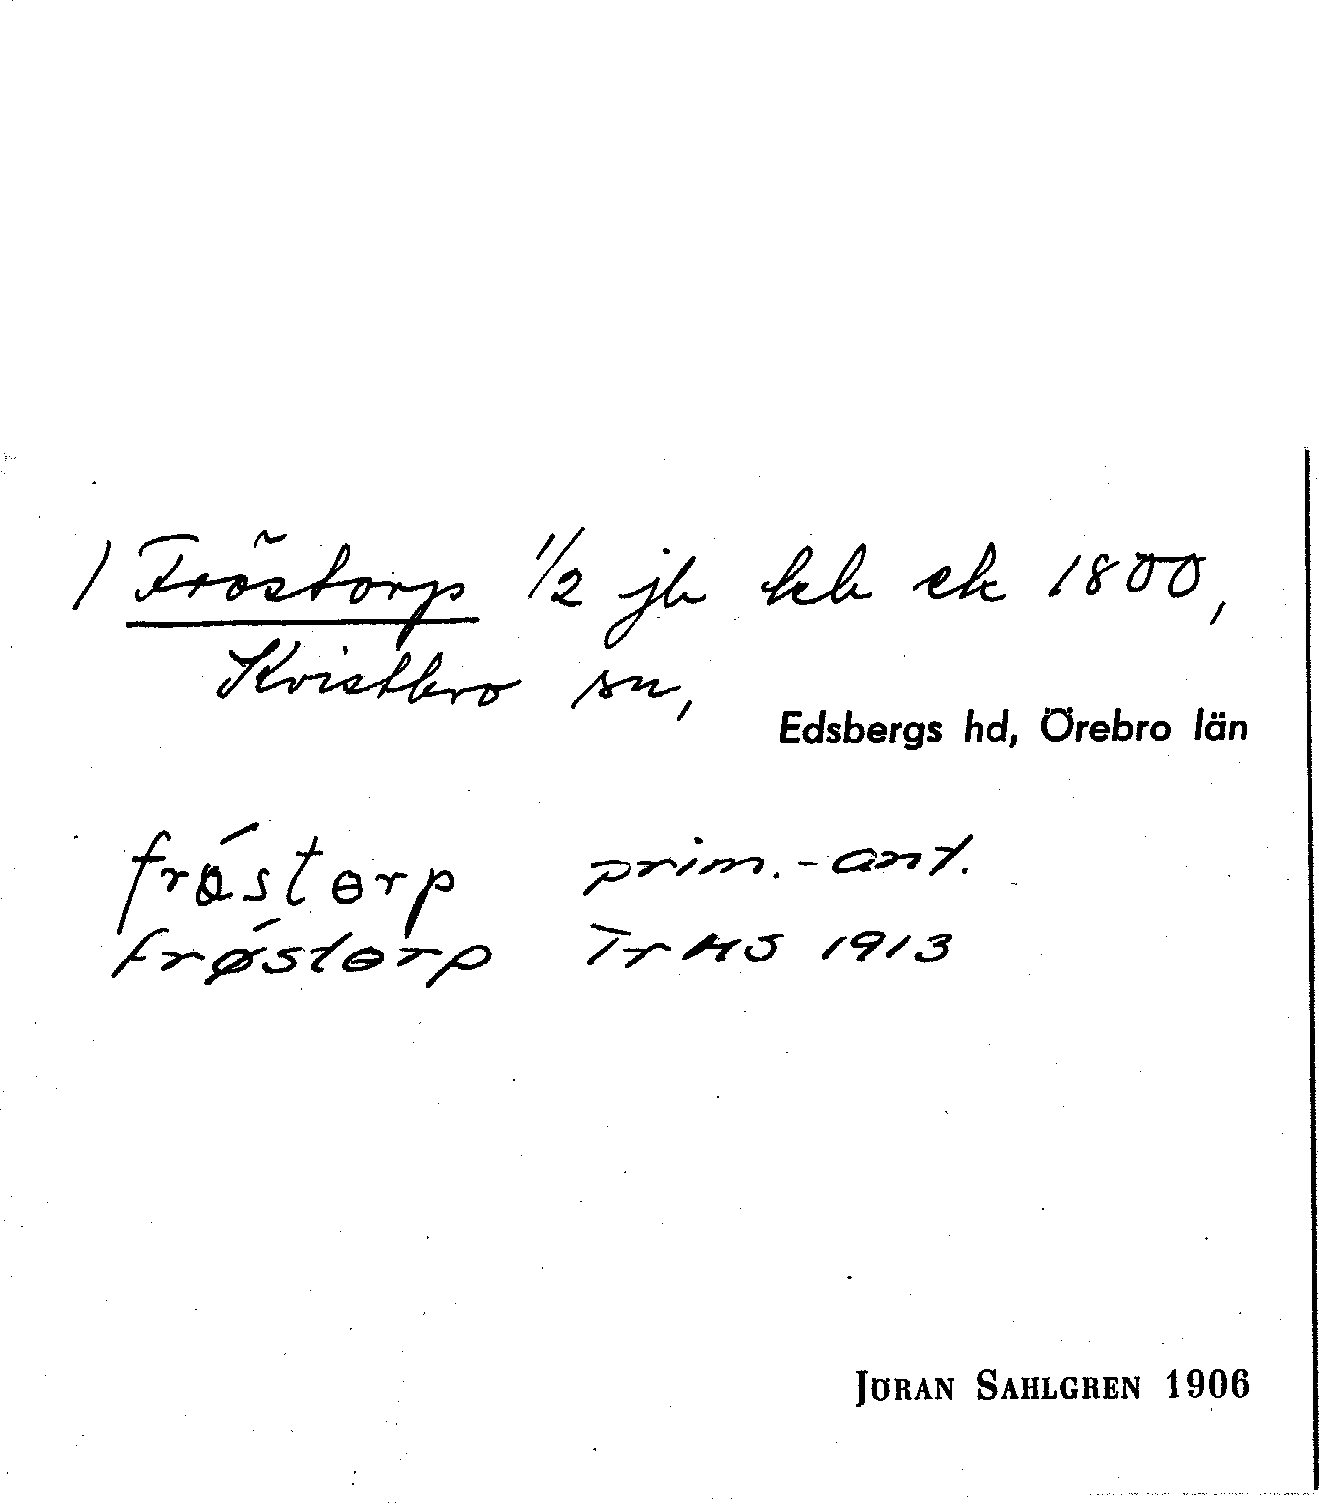 1 Fröstorp 1/2 jb kb ek 1800,
Kvistbro sn,
Edsbergs hd, Örebro län
frǿstɵrp prim.-ant.
frǿstɵrp Tr HS 1913
JÖRAN SAHLGREN 1906